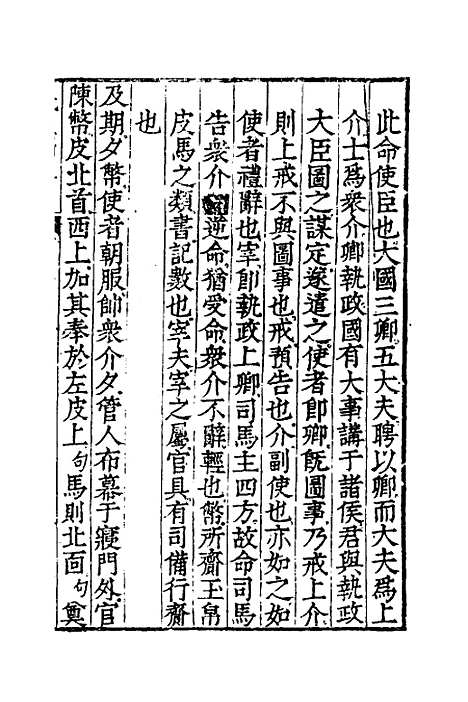 此命使臣也大國三卿五大夫聘以卿而大夫爲上
介士爲衆介卿執政國有大事講于諸侯君與執政
大臣圖之謀定遂遣之使者卽卿旣圖事乃戒上介
則上戒不與圖事也戒預告也介副使也亦如之如
使者禮辭也宰卽執政上卿司馬主四方故命司馬
告衆介逆命猶受命衆介不辭輕也幣所齎玉帛
皮馬之類書記數也宰夫宰之屬官具有司備行齎
也
及期夕幣使者朝服帥衆介夕管人布幕于寢門外官
陳幣皮北首西上加其奉於左皮上句馬則北面句奠